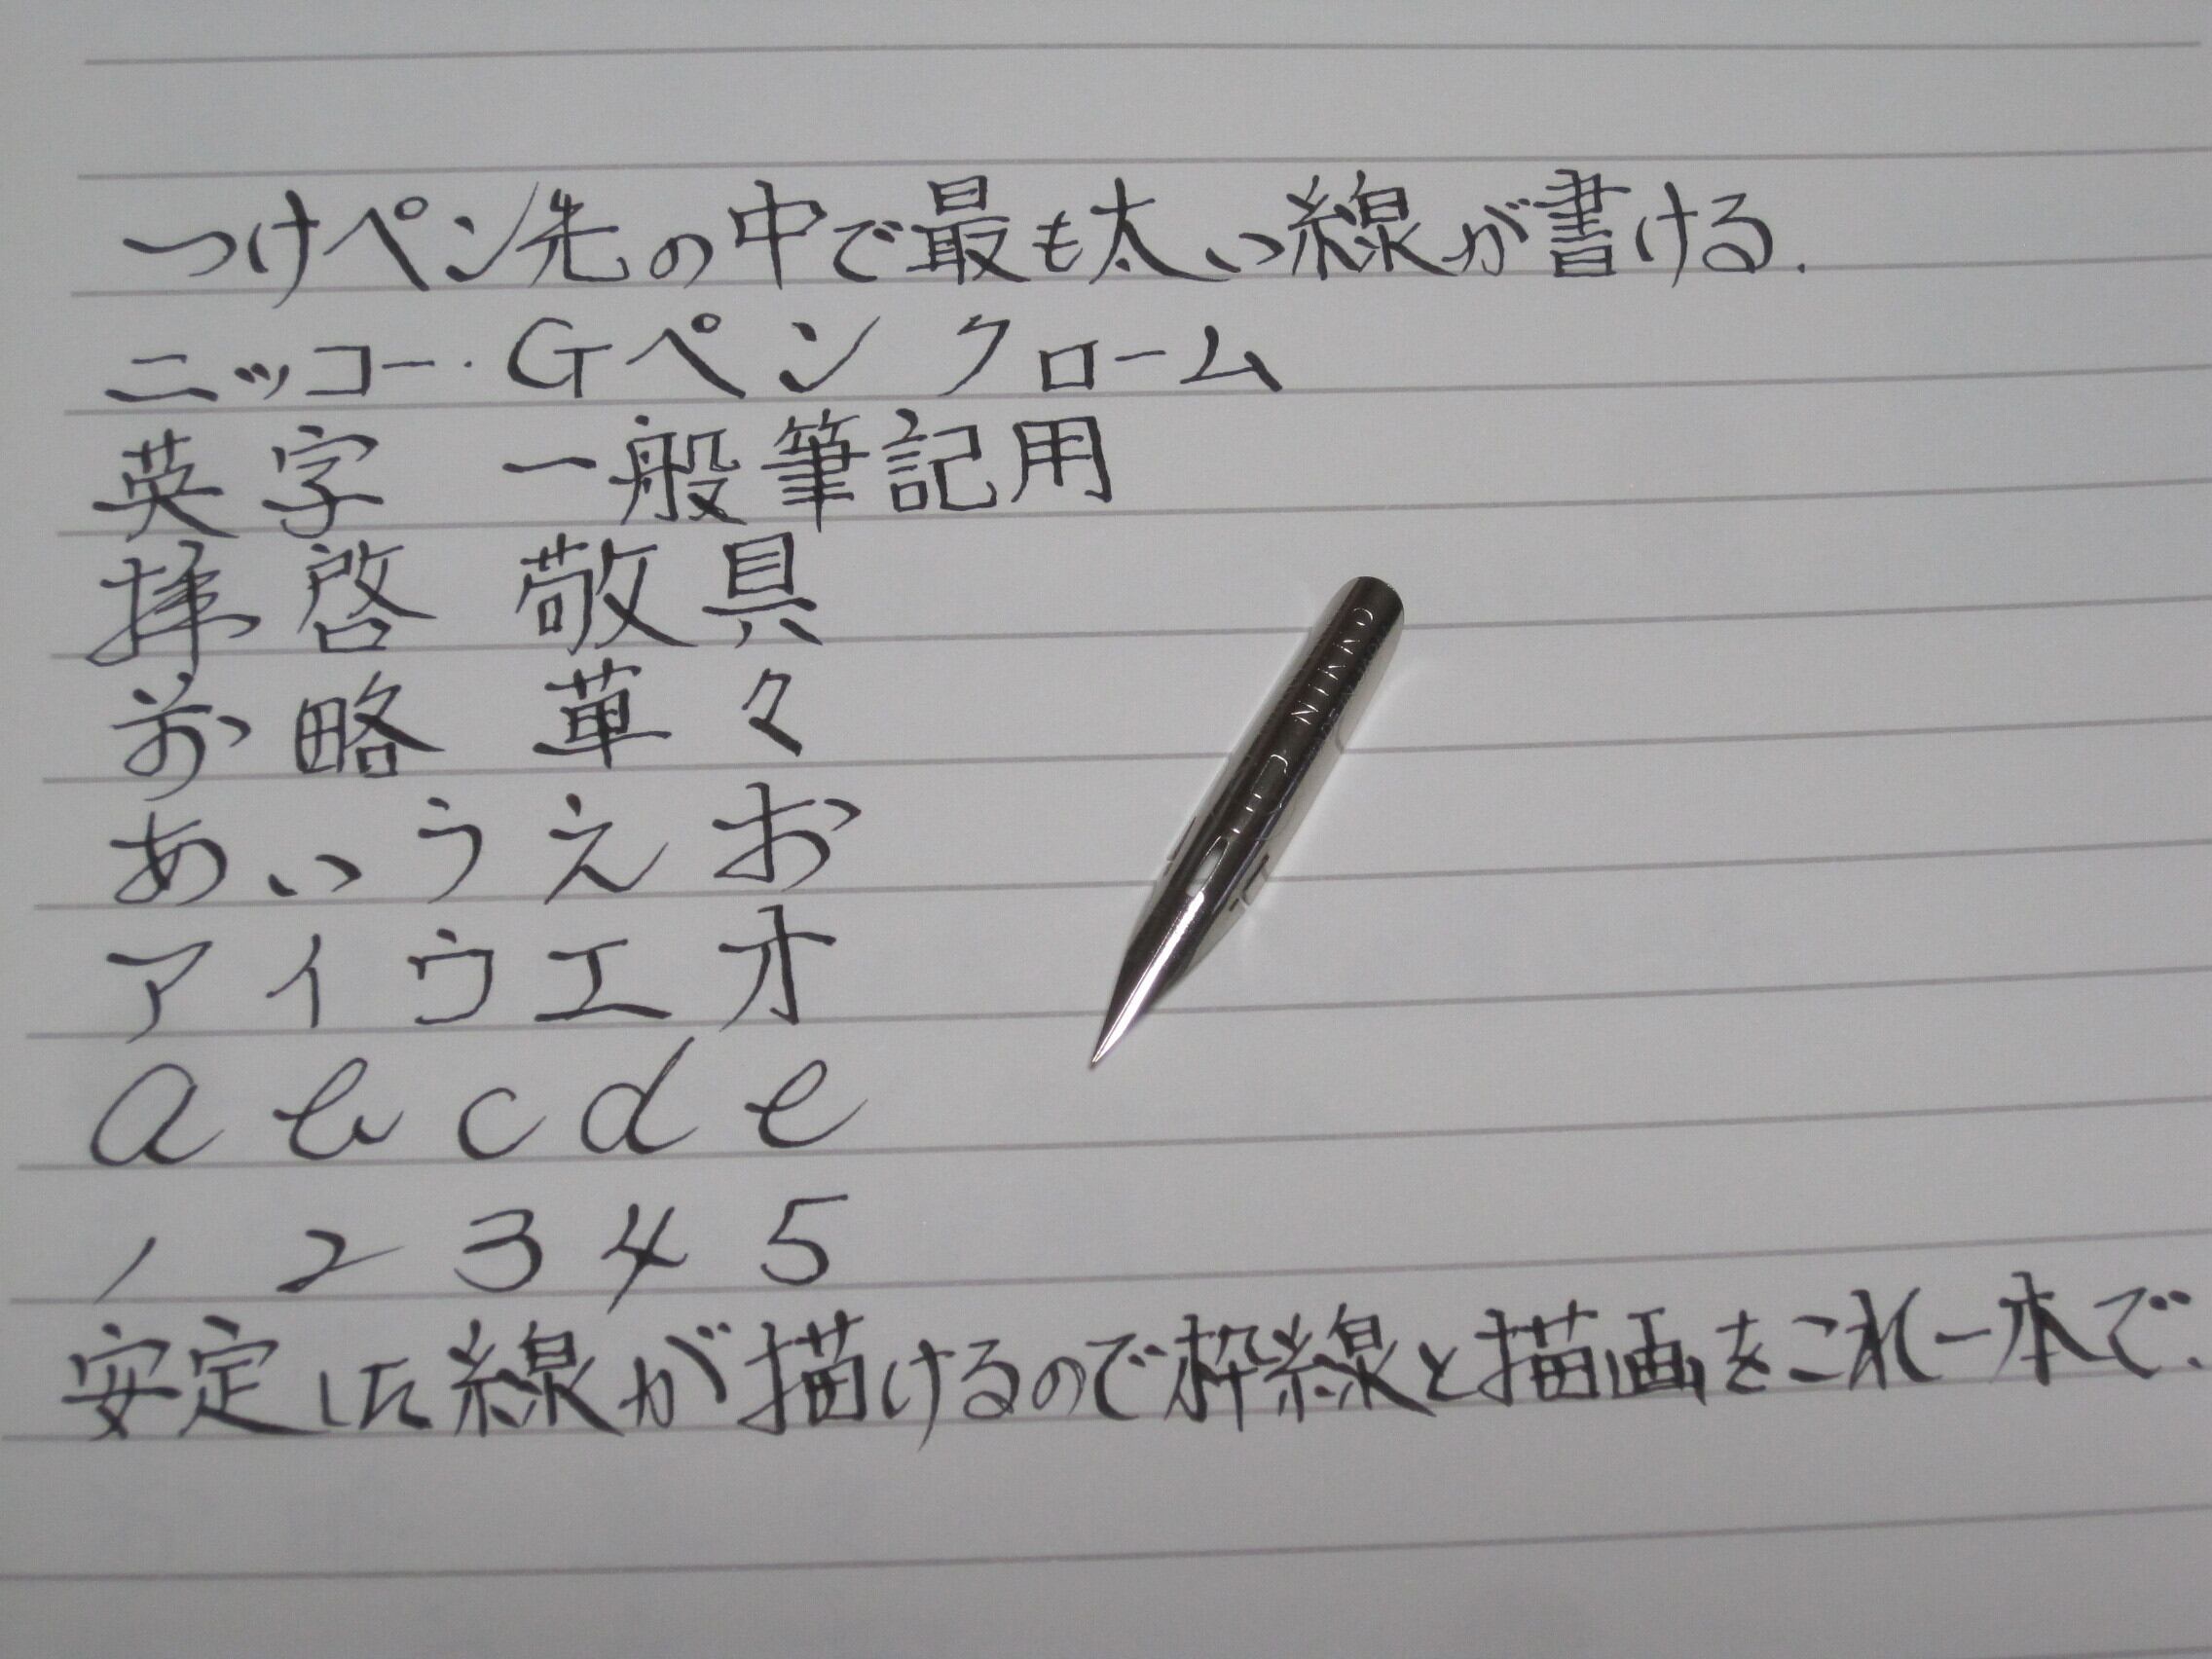 つけペン先の中で最も太い線が書ける.
ニッコー・Gペン クローム
英字 一般筆記用
拝啓 敬具
前略 草々
あいうえお
アイウエオ
a b c d e
1 2 3 4 5
安定した線が描けるので枠線と描画をこれ一本で.
NIKKO